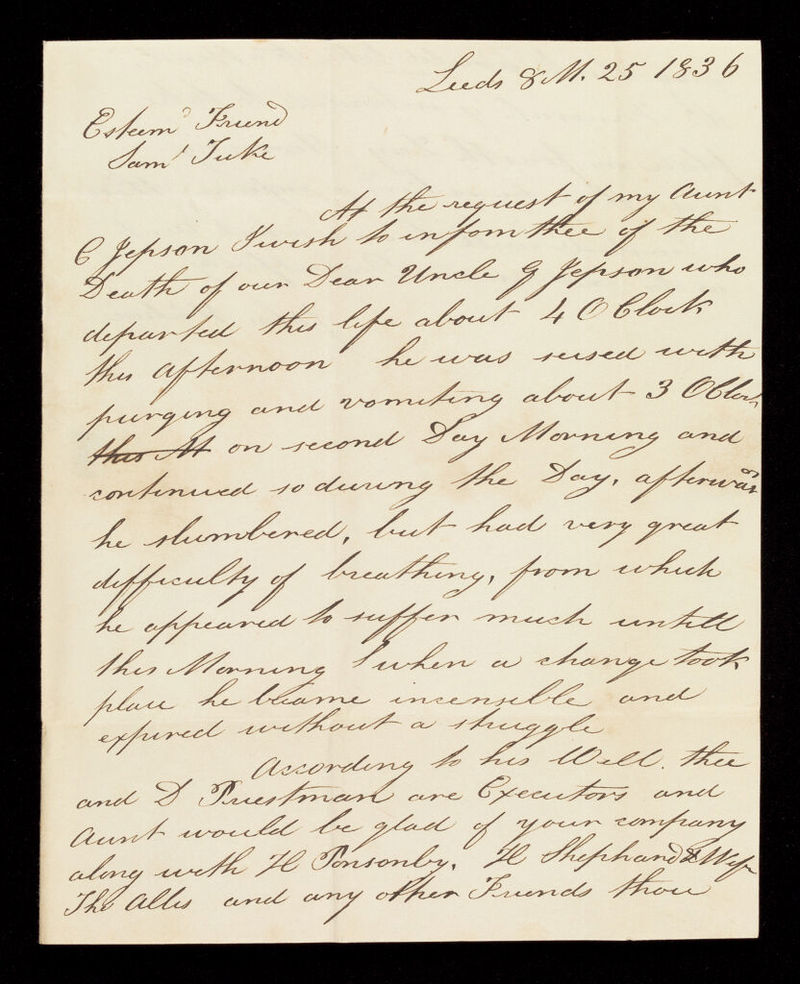 Leeds 8 M. 25 1836
Esteemd Friend
Saml Tuke
At the request of my Aunt
C Jepson I wish to infom thee of the
Death of our Dear Uncle G Jepson who
departed this life about 4 O Clock
this afternoon he was seised with
purging and vomiting about 3 OClock
this M on second Day Morning and
continued so during the Day, afterwards
he slumbered, but had very great
difficulty of breathing, from which
he appeared to suffer much untill
this Morning when a change took
place he became insensible and
expired without a struggle
According to his Will. thee
and D Priestman are Executors and
Aunt would be glad of your company
along with H Ponsonby, H Shephard & Wife
Tho Allis and any other Friends thou